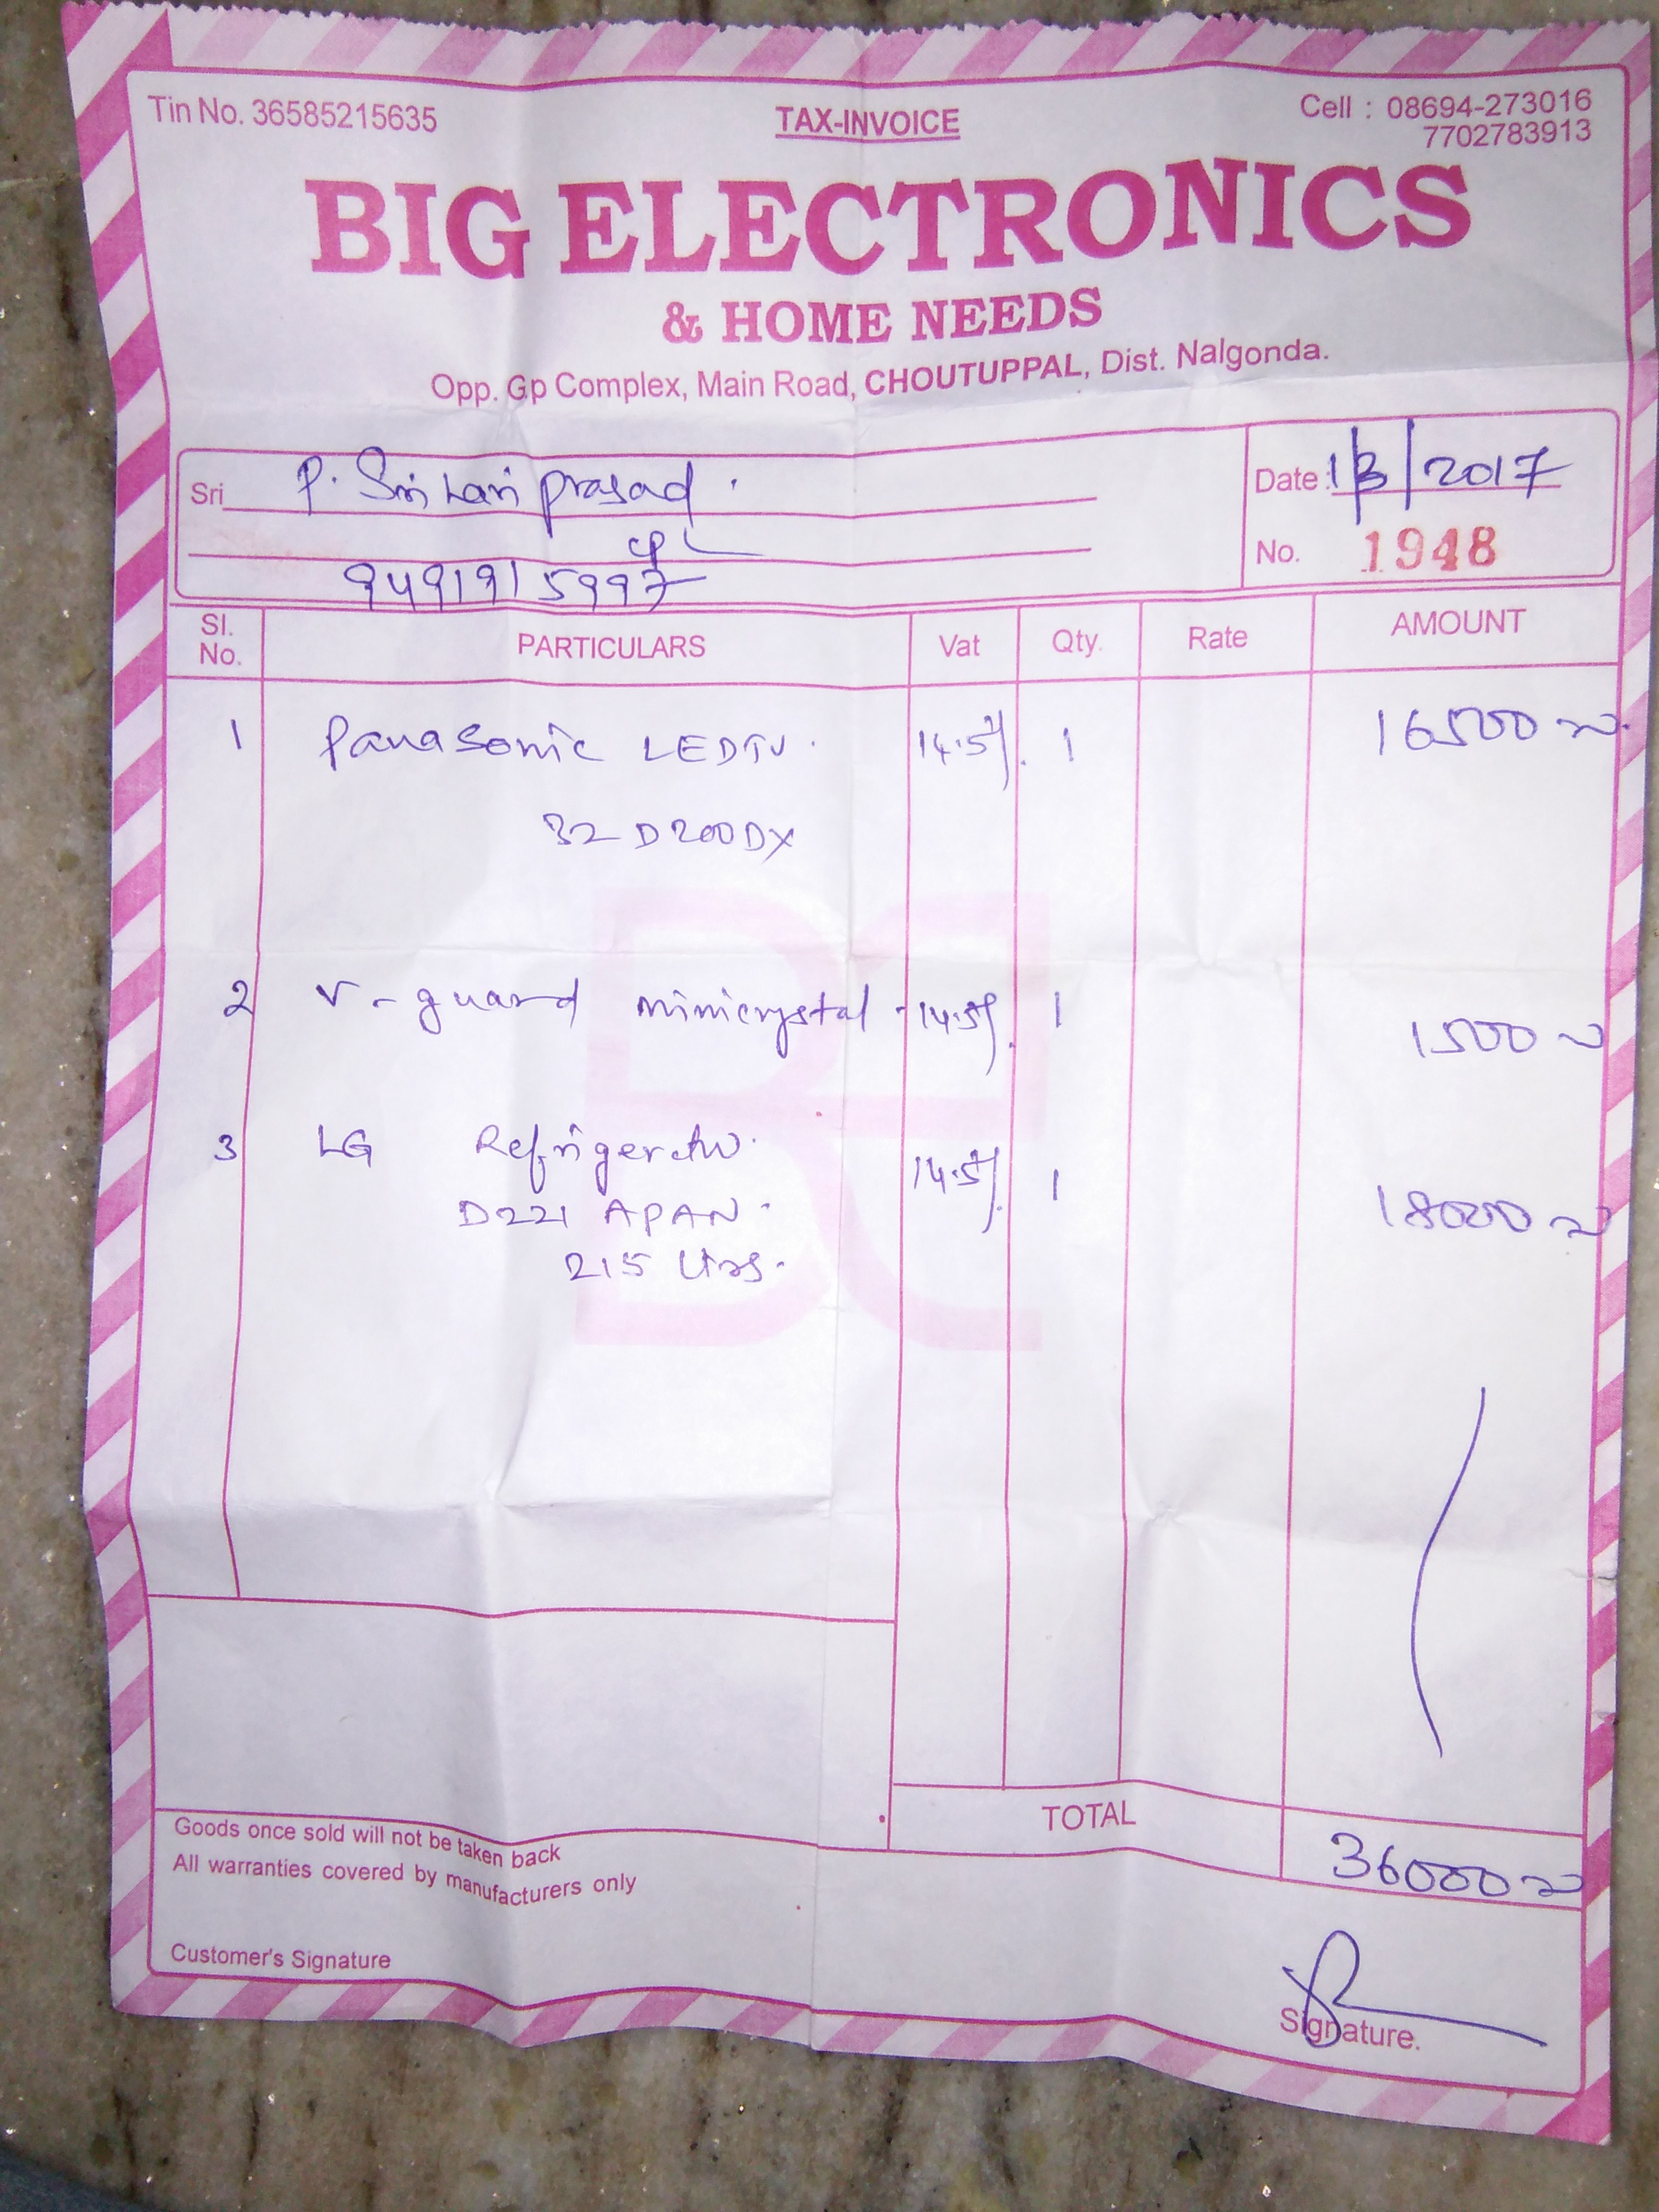 Tin No. 36585215635
TAX-INVOICE
Cell : 08694-273016
7702783913
BIG ELECTRONICS
& HOME NEEDS
Opp. Gp Complex, Main Road, CHOUTUPPAL, Dist. Nalgonda.
Sri P. Sri hari prasad.
Date : 1/3/2017
cpl
9491915997
No. 1948
Sl. No. PARTICULARS Vat Qty. Rate AMOUNT
1 Panasonic LEDTV. 14.5% 1 16500
32D200DX
2 V-guard minicrystal - 14.5% 1 1500
3 LG Refrigerator. 14.5% 1 18000
D221 APAN.
215 Ltrs.
TOTAL 36000
Goods once sold will not be taken back
All warranties covered by manufacturers only
Customer's Signature
Signature.